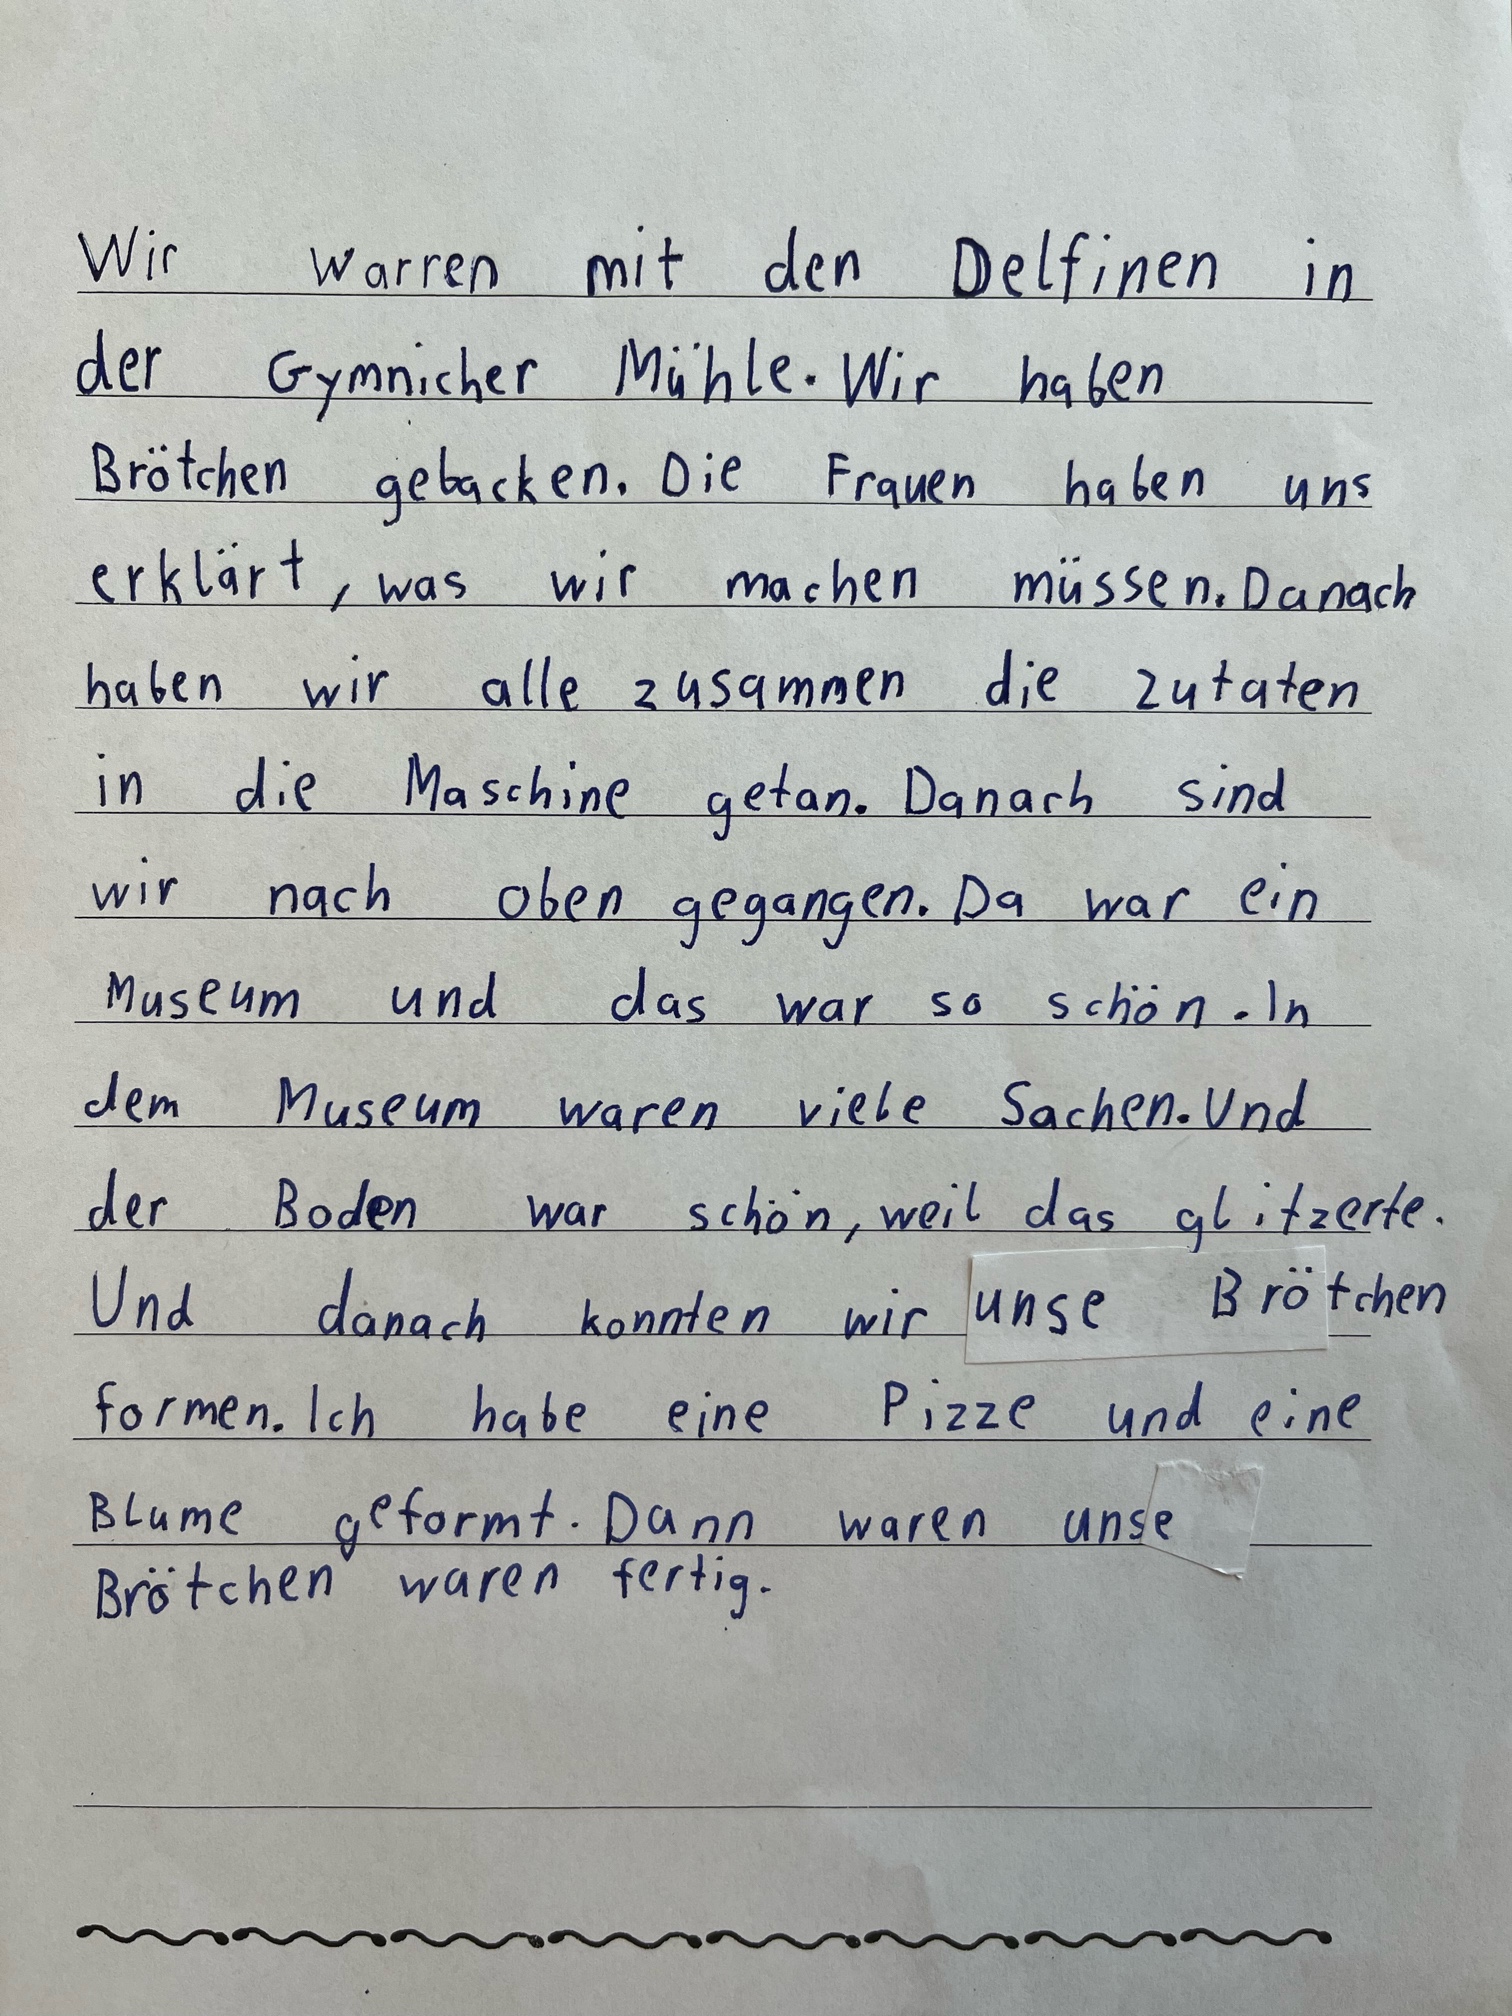 Wir warren mit den Delfinen in
der Gymnicher Mühle. Wir haben
Brötchen gebacken. Die Frauen haben uns
erklärt, was wir machen müssen. Danach
haben wir alle zusammen die zutaten
in die Maschine getan. Danach sind
wir nach oben gegangen. Da war ein
Museum und das war so schön. In
dem Museum waren viele Sachen. Und
der Boden war schön, weil das glitzerte.
Und danach konnten wir unse Brötchen
formen. Ich habe eine Pizze und eine
Blume geformt. Dann waren unse
Brötchen waren fertig.